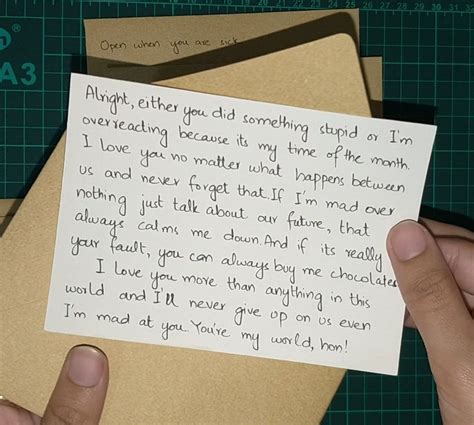 A3
Open when you are sick
Alright, either you did something stupid or I'm
overreacting because its my time of the month.
I love you no matter what happens between
us and never forget that. If I'm mad over
nothing just talk about our future, that
always calms me down. And if its really
your fault, you can always buy me chocolates
I love you more than anything in this
world and I'll never give up on us even
I'm mad at you. You're my world, hon!